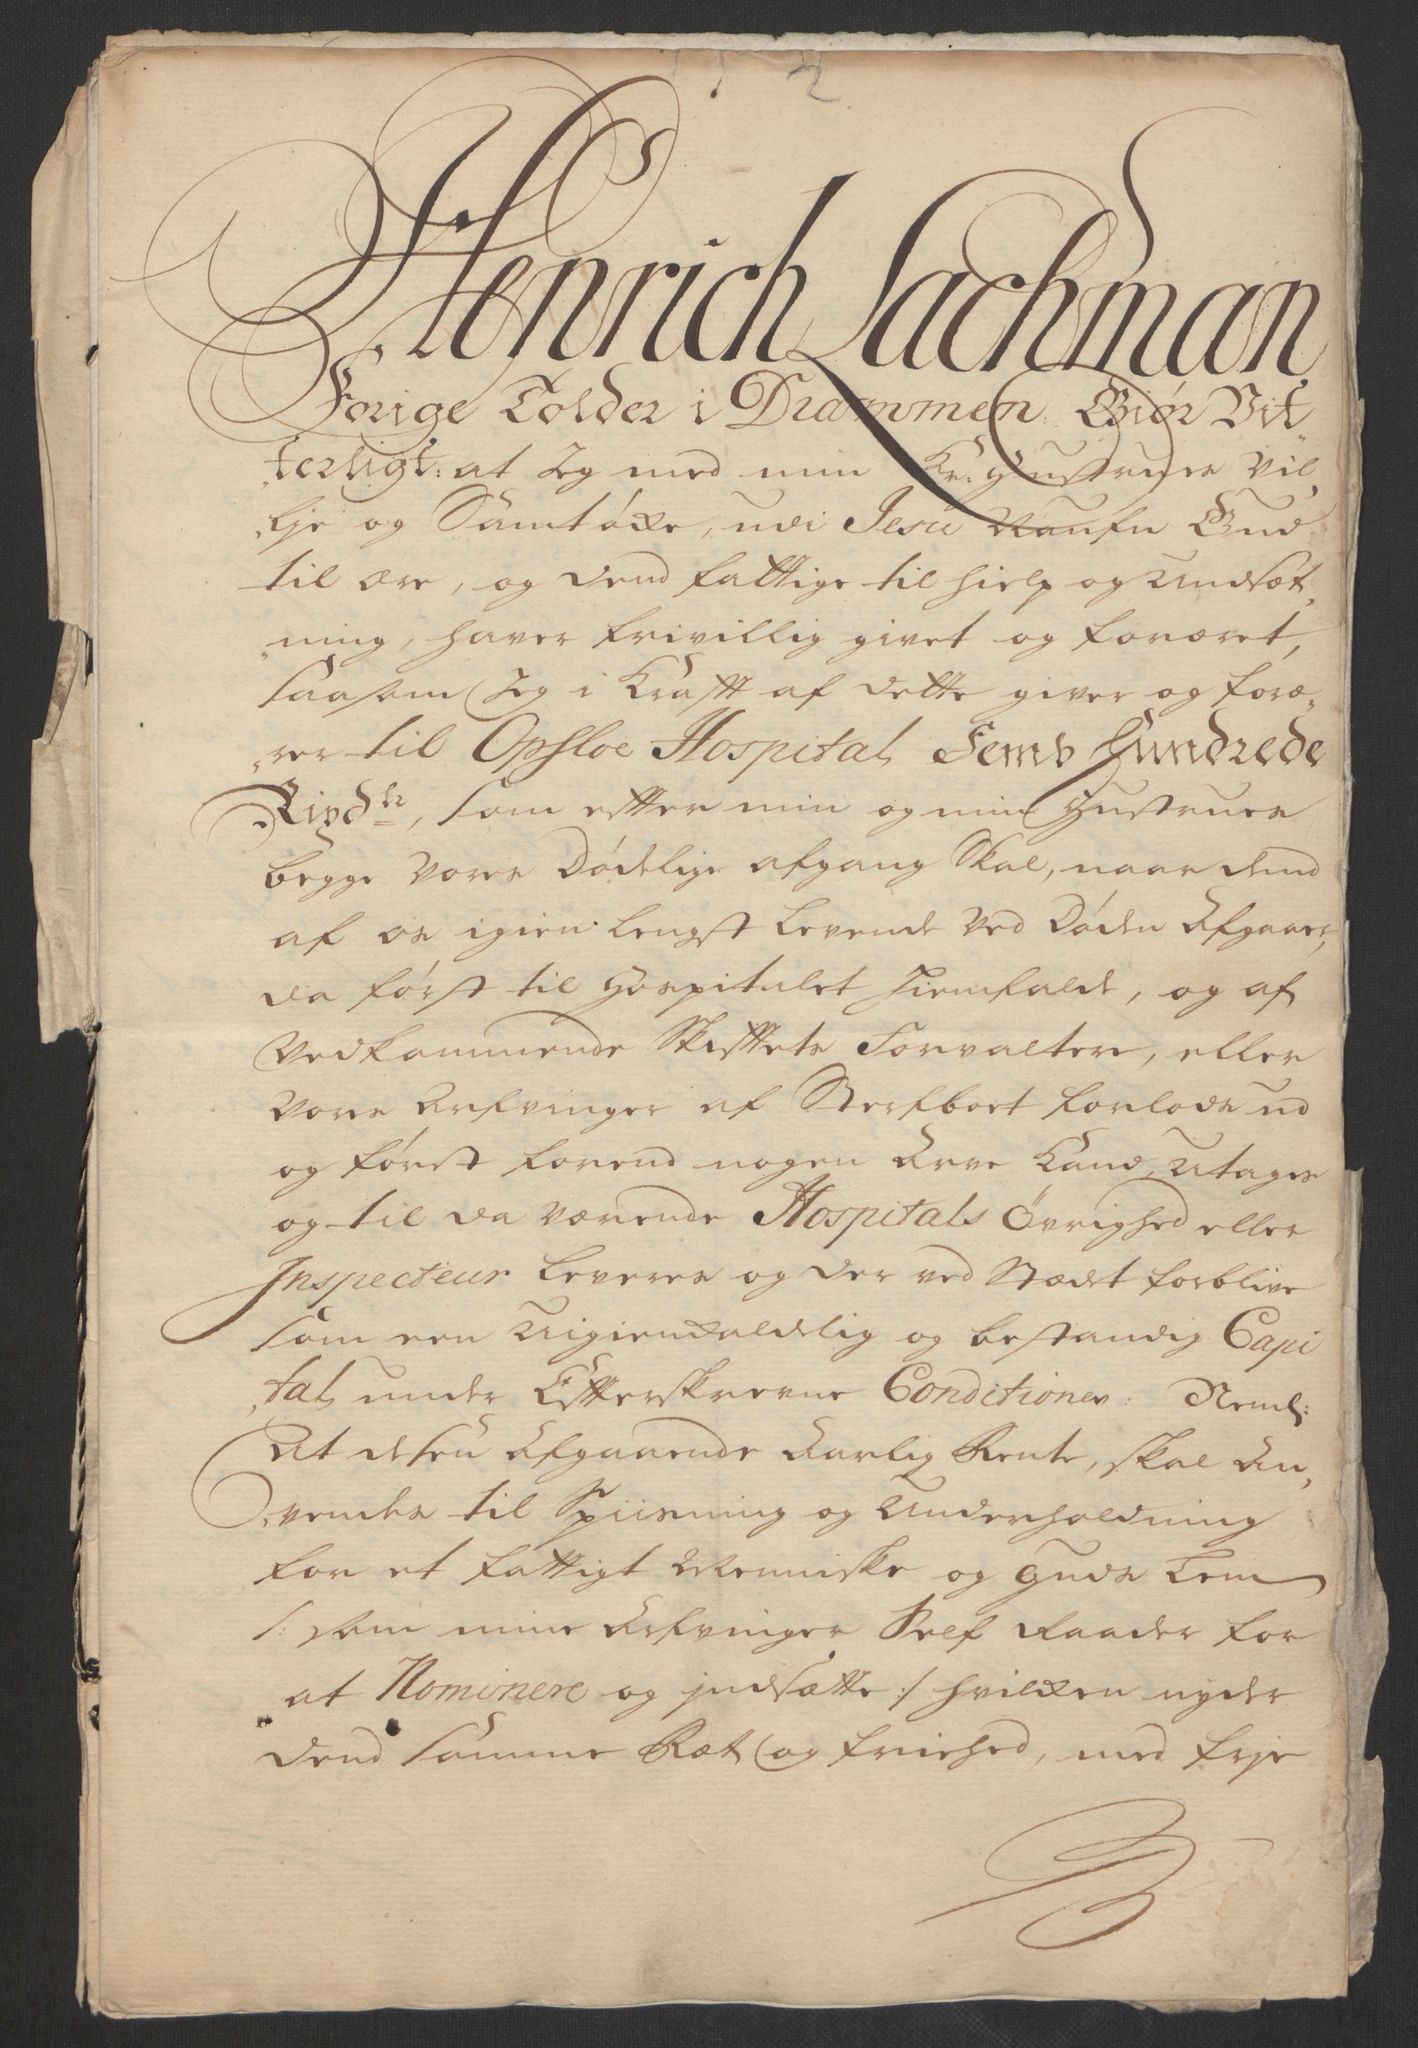 2
Henrich Lachman
Forige Tolder i Drammen. Giør Vit
„terligt: at Jeg med min Kr: Hustrues Vil„
„lje og Samtøke, udi Jesu Naufn Gud
til ære, og dend fattige til hielp og Undsæt„
„ning, haver frivillig givet og foræret,
saasom Jeg i Krafft af dette giver og foræ„
„rer til Opsloe Hospital Fem Hundrede
Rixdlr, som effter min og min Hustrues
begge vores Dødelige afgang Skal, naar dend
af os igien lengst Levende ved Døden Afgaaer,
da først til Hospitalet hiemfalde, og af
vedkommende Skifftets Forvaltere, eller
vores Arfvinger af Sterfboet forlods ud
og først forend nogen Arve Kand Utages
og til da værende Hospitals Øvrighed eller
Inspecteur Leveres og der ved Stædet forblive
som een Uigienkaldelig og bestandig Capi
„tal under Effterskrevne Conditioner. Neml:
At desen Afgaaende Aarlig Rente, skal An„
„vendes til Spiisning og Underholdning
for et fattigt Menniske og Guds Lem
/: som mine Arfvinger Self Raader for
at Nominere og jndsætte :/ hvilken nyder
dend samme Ræt og friehed, med frje